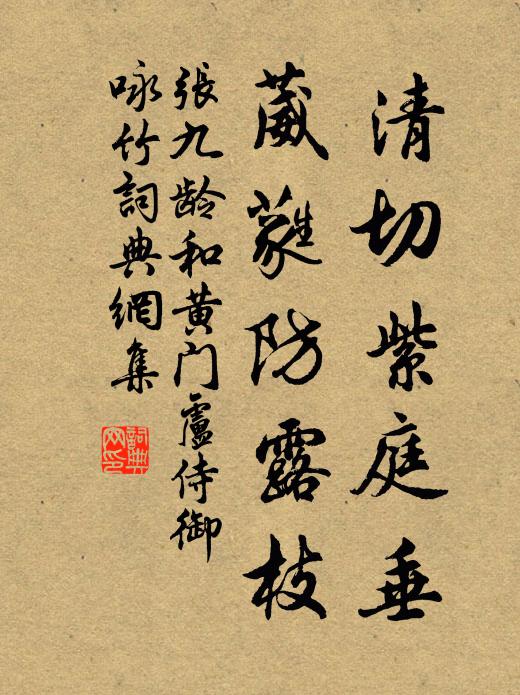 清切紫庭垂
葳蕤防露枝
張九龄和黄门盧侍御
咏竹詞典網集
詞典网印